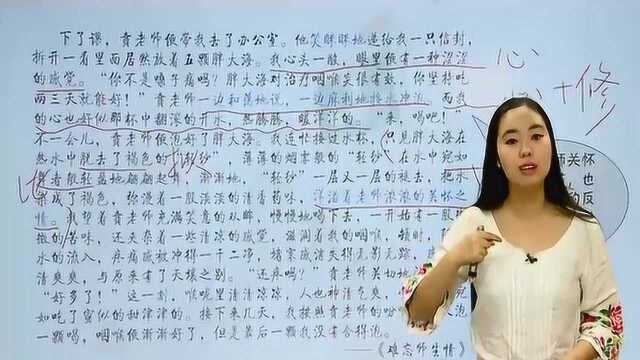 下了课，贵老师便带我去了办公室。他笑眯眯地递给我一只信封，
拆开一看里面居然放着五颗胖大海。我心头一酸，眼里便有一种湿湿
的感觉。“你不是嗓子痛吗？胖大海对治疗咽喉炎很有效，你坚持吃
两三天就能好！”贵老师一边和蔼地说，一边麻利地接水冲泡，而我
的心也好似那杯中翻滚的开水，热腾腾，暖洋洋的。“来，喝吧！”
不一会儿，贵老师便泡好了胖大海。我连忙接过水杯，只见胖大海在
热水中脱去了褐色的“轻纱”，薄薄的烟雾般的“轻纱”在水中宛如
舞者般轻盈地翩翩起舞，渐渐地，“轻纱”一层又一层的褪去，把水
染成了褐色，弥漫着一股淡淡的清香药味，洋溢着老师滚滚的关怀之
情。我望着老师充满笑意的双眸，慢慢地喝下去，一开始有一股
微的苦味，还夹杂着一些清凉的感觉，滋润着我的咽喉，顿时，
水的流入，疼痛感被冲得一干二净，堵塞感消失得无影无踪，
清爽爽，与原来有了天壤之别。“还疼吗？”贵老师关切地
“好多了！”这一刻，喉咙里清清凉凉，人也神清气爽，
如吃了蜜似的甜津津的。接下来几天，我接照贵老师的吩咐
一颗喝，咽喉便渐渐好了，但是最后一颗我没舍得泡。
——《难忘师生情》
心
+修
比
师关怀
也
的反